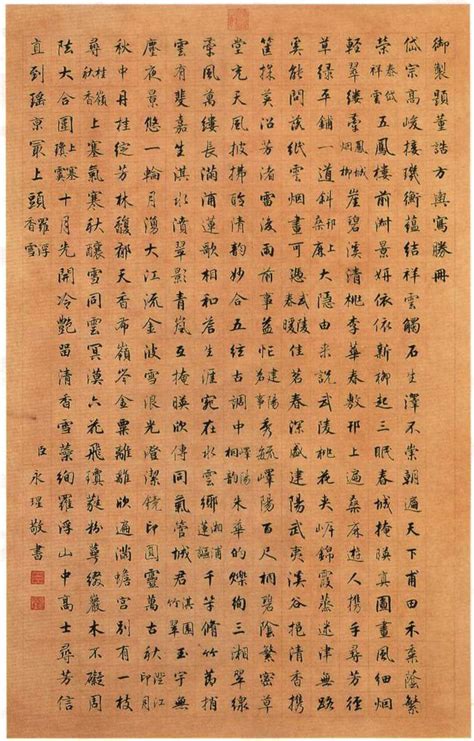 御製題董誥方輿寫勝冊
岱宗高峻接璣衡蘊結祥雲觸石生澤不崇朝遍天下甫田禾黍蔭繁
榮春岱祥雲五鳳樓前淑景妍依依新柳起三眠春城掩暎真圖畫風細烟
輕翠縷牽鳳城烟柳崖碧溪清桃李華春敷邗上遍桑麻遊人攜手尋芳徑
草綠平鋪一道斜邗上桑麻大隱由來說武陵桃花夾岸錦霞蒸迷津無路
奚能問試紙雲烟畫可憑武陵春暖佳茗春深盛建陽武夷溪谷挹清香攜
筐採沿芳渚雷後雨前事益忙建陽茗事秀毓嶧陽百尺桐碧陰繁密草
堂充天風披拂時清韵妙合五絃古調中嶧陽桐韵朱華的爍絢三湘翠綠
牽風萬縷長滿浦蓮歌相和答生涯宛在水雲鄉湘浦蓮謳千竿脩竹梢
雲有斐嘉生淇水濆翠影青嵐互掩暎欣傳同氣管城君淇園竹翠玉宇無
塵夜景悠一輪月湧大江流金波雪浪光燈潔鏡印圓靈萬古秋澄江印月
秋中丹桂綻芳林馥郁天香希嶺岑金粟離離欣遍滿蟾宮別有一枝
尋桂嶺秋香上塞氣寒秋釀雪同雲冥漠六花飛瓊敲粉萼綴巖木不礙周
陸大合圍上塞十月先開冷艷留清香雪蕚絢羅浮山中高士尋芳信
直到瑤京最上頭羅浮香雪
臣永瑆敬書